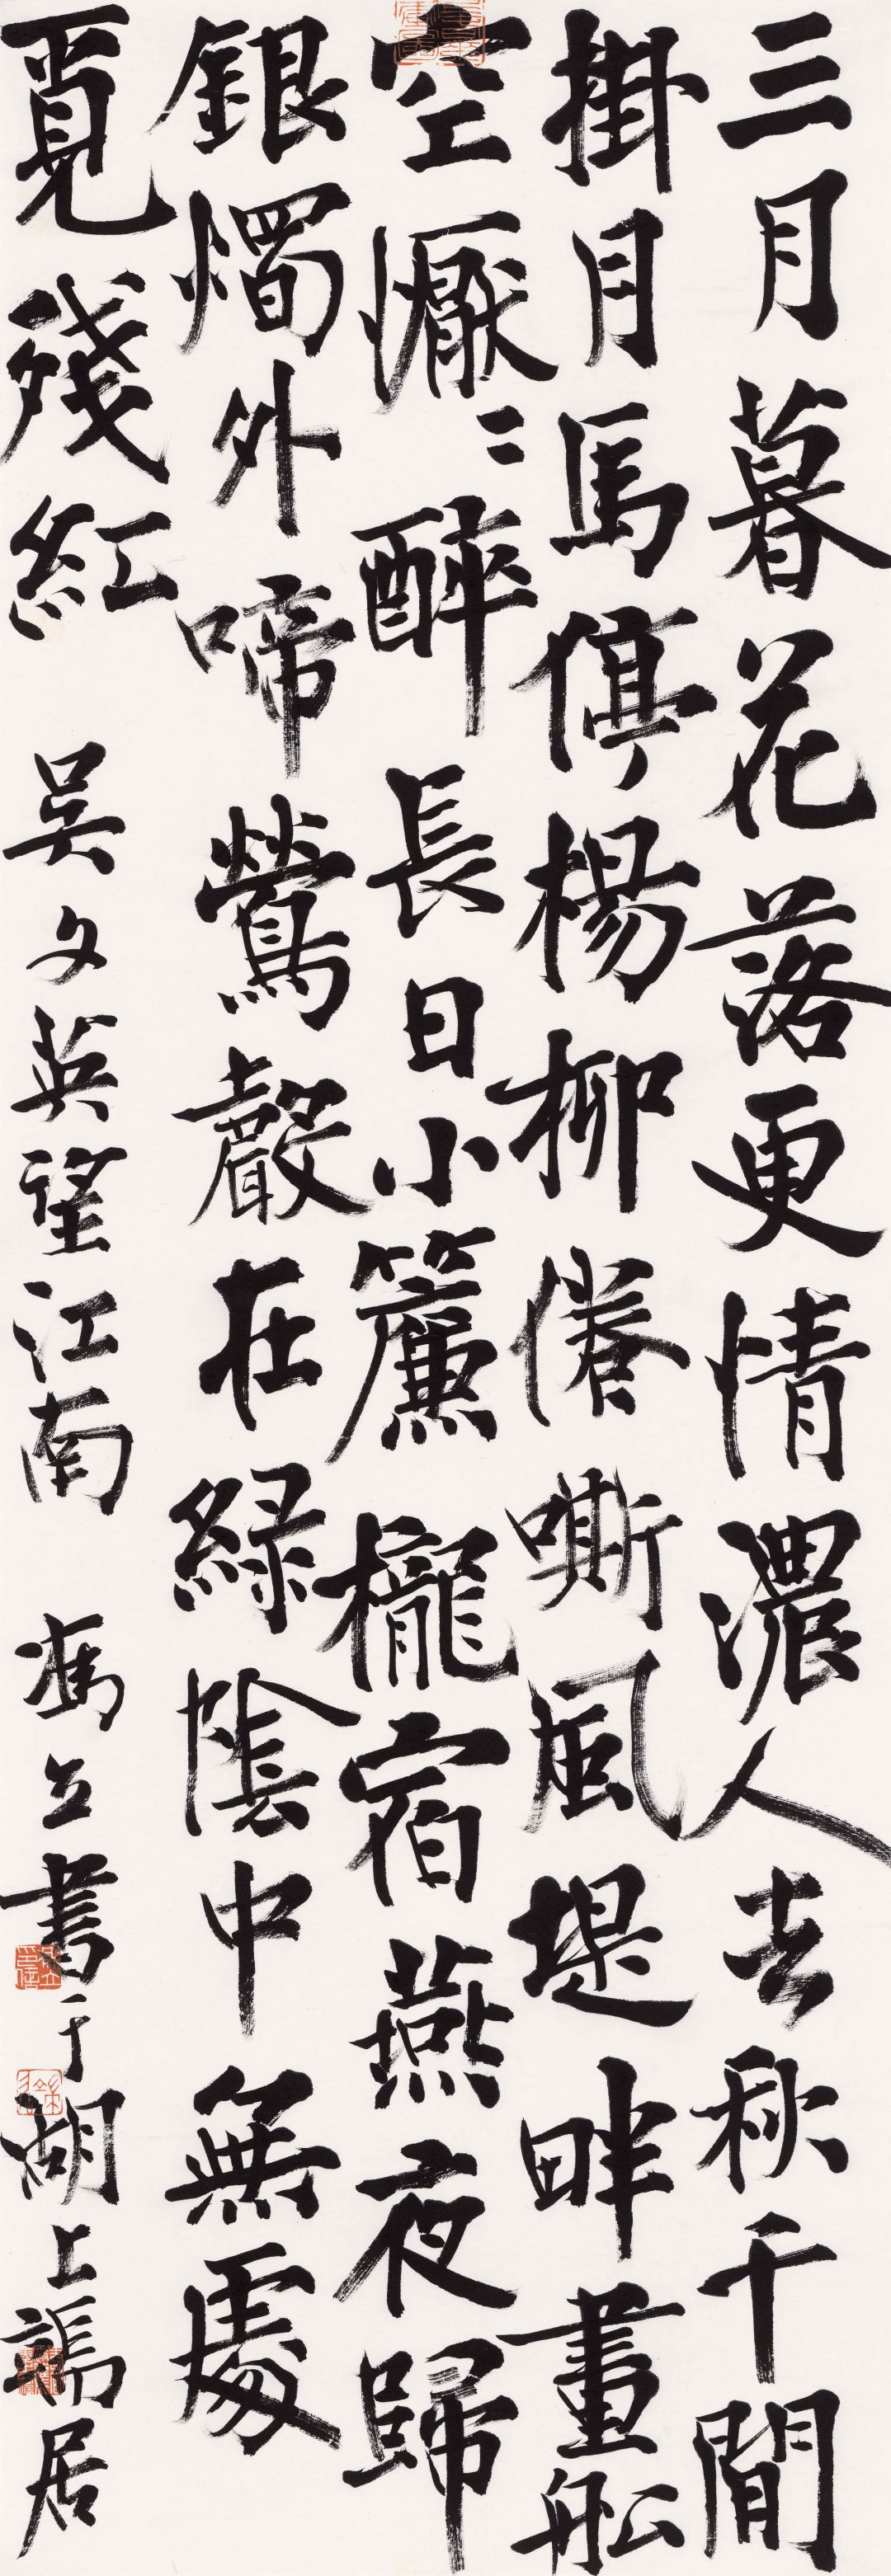 三月暮花落更情濃人去秋千閒
掛月馬停楊柳倦嘶風堤畔畫舩
空懨〻醉長日小簾櫳宿燕夜歸
銀燭外啼鶯聲在緑陰中無處
覓殘紅 吳文英望江南 馮立書于湖上居